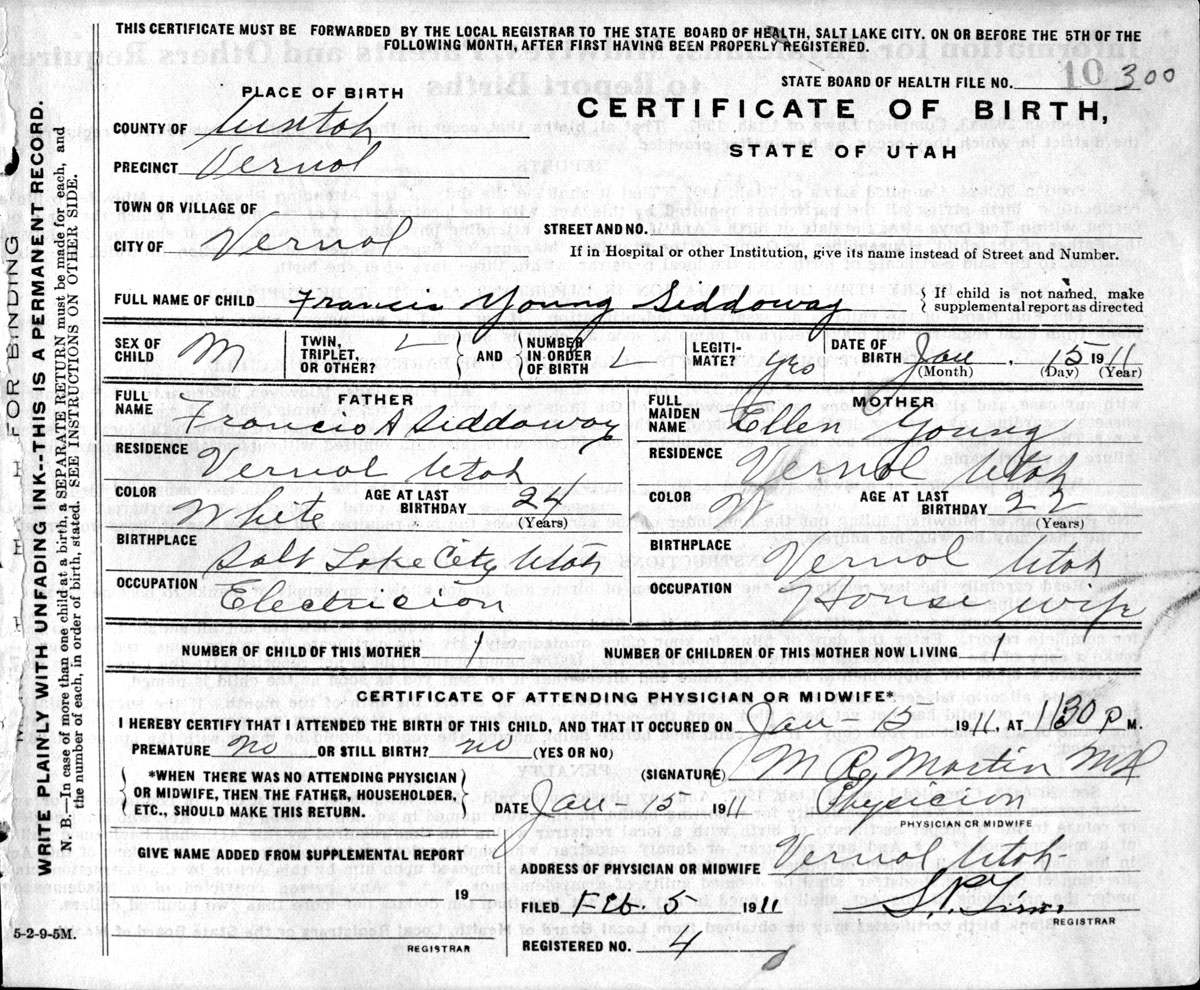 THIS CERTIFICATE MUST BE FORWARDED BY THE LOCAL REGISTRAR TO THE STATE BOARD OF HEALTH, SALT LAKE CITY. ON OR BEFORE THE 5TH OF THE
FOLLOWING MONTH, AFTER FIRST HAVING BEEN PROPERLY REGISTERED.
STATE BOARD OF HEALTH FILE NO. 10 300
PLACE OF BIRTH
CERTIFICATE OF BIRTH,
STATE OF UTAH
COUNTY OF Uintah
PRECINCT Vernal
TOWN OR VILLAGE OF
CITY OF Vernal
STREET AND NO.
If in Hospital or other Institution, give its name instead of Street and Number.
FULL NAME OF CHILD Francis Young Siddoway
{ If child is not named, make
supplemental report as directed
SEX OF CHILD M
TWIN, TRIPLET, OR OTHER?
AND
NUMBER IN ORDER OF BIRTH
LEGITIMATE? yes
DATE OF BIRTH Jan. 15 1911
(Month) (Day) (Year)
FATHER
FULL NAME Francis A Siddoway
RESIDENCE Vernal Utah
COLOR White AGE AT LAST BIRTHDAY 24
(Years)
BIRTHPLACE Salt Lake City Utah
OCCUPATION Electrician
MOTHER
FULL MAIDEN NAME Ellen Young
RESIDENCE Vernal Utah
COLOR W AGE AT LAST BIRTHDAY 22
(Years)
BIRTHPLACE Vernal Utah
OCCUPATION House wife
NUMBER OF CHILD OF THIS MOTHER 1 NUMBER OF CHILDREN OF THIS MOTHER NOW LIVING 1
CERTIFICATE OF ATTENDING PHYSICIAN OR MIDWIFE*
I HEREBY CERTIFY THAT I ATTENDED THE BIRTH OF THIS CHILD, AND THAT IT OCCURED ON Jan 15 1911, AT 1130 P M.
PREMATURE no OR STILL BIRTH? no (YES OR NO)
{ *WHEN THERE WAS NO ATTENDING PHYSICIAN
OR MIDWIFE, THEN THE FATHER, HOUSEHOLDER,
ETC., SHOULD MAKE THIS RETURN. }
(SIGNATURE) Martin MD
DATE Jan - 15 1911 Physician
PHYSICIAN OR MIDWIFE
GIVE NAME ADDED FROM SUPPLEMENTAL REPORT
19
REGISTRAR
ADDRESS OF PHYSICIAN OR MIDWIFE Vernal Utah
FILED Feb. 5 1911
REGISTRAR
REGISTERED NO. 4
5-2-9-5M.
FOR BINDING
WRITE PLAINLY WITH UNFADING INK---THIS IS A PERMANENT RECORD.
N. B.—In case of more than one child at a birth, a SEPARATE RETURN must be made for each, and
the number of each, in order of birth, stated. SEE INSTRUCTIONS ON OTHER SIDE.